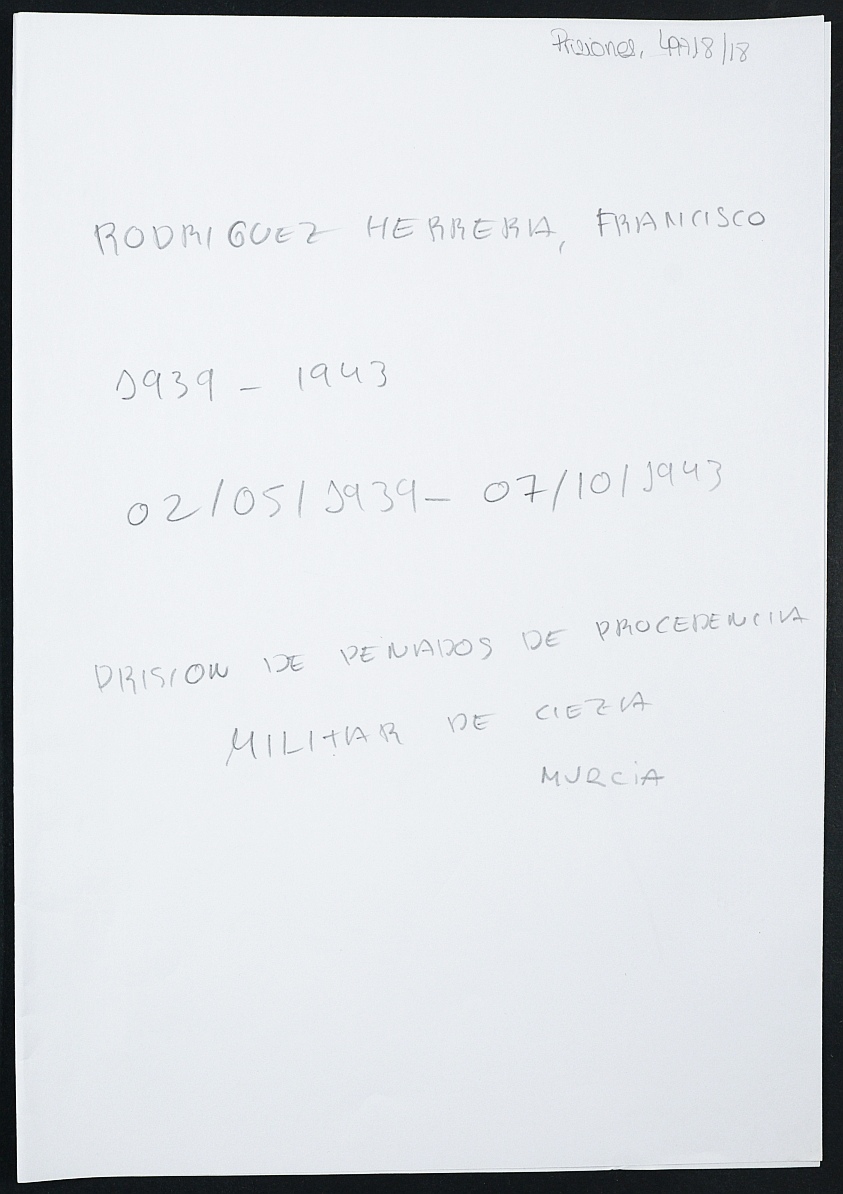 Prisiones, 49718/18
RODRIGUEZ HERRERIA, FRANCISCO
1939 - 1943
02/05/1939 - 07/10/1943
PRISION DE PENADOS DE PROCEDENCIA
MILITAR DE CIEZA
MURCIA